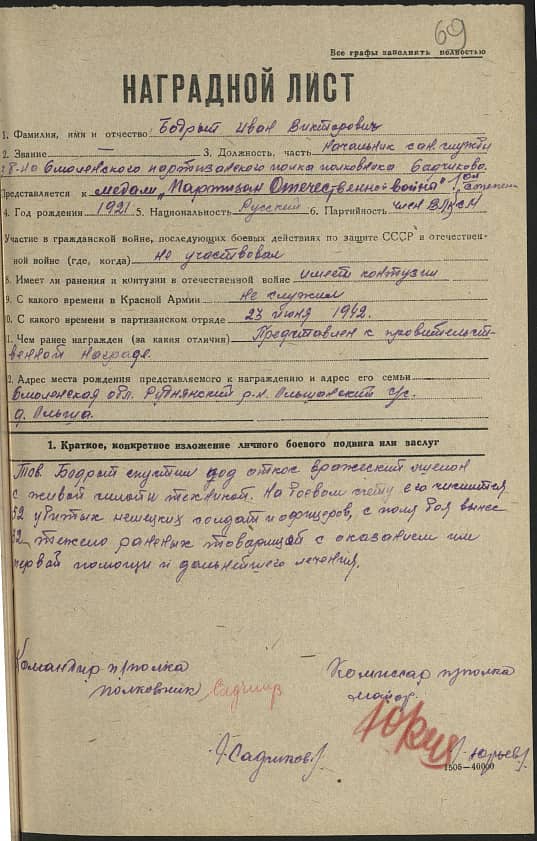 69
Все графы заполнить полностью
НАГРАДНОЙ ЛИСТ
1. Фамилия, имя и отчество Бодрый Иван Викторович
2. Звание — 3. Должность, часть Начальник сан. службы
Смоленского партизанского полка полковника Садчикова
Представляется к медали „Партизан Отечественной войны" I ой степени
4. Год рождения 1921 5. Национальность Русский 6. Партийность член ВЛКСМ
Участие в гражданской войне, последующих боевых действиях по защите СССР в отечествен-
ной войне (где, когда) не участвовал
8. Имеет ли ранения и контузии в отечественной войне имеет контузии
9. С какого времени в Красной Армии не служил
0. С какого времени в партизанском отряде 23 июня 1942.
1. Чем ранее награжден (за какия отличия) Представлен к правительст-
венной награде.
2. Адрес места рождения представляемого к награждению и адрес его семьи
Смоленская обл. Руднянский р-н. Ольшанский с/с.
д. Ольша.
1. Краткое, конкретное изложение личного боевого подвига или заслуг
Тов. Бодрый спустил под откос вражеский эшелон
с живой силой и техникой. На боевом счету его числится
52 убитых немецких солдат и офицеров, с поля боя вынес
32 тяжело раненых товарищей с оказанием им
первой помощи и дальнейшего лечения.
Командир п/полка
полковник
/Садчиков/.
Комиссар п/полка
майор.
/Юрьев/.
1505—40000